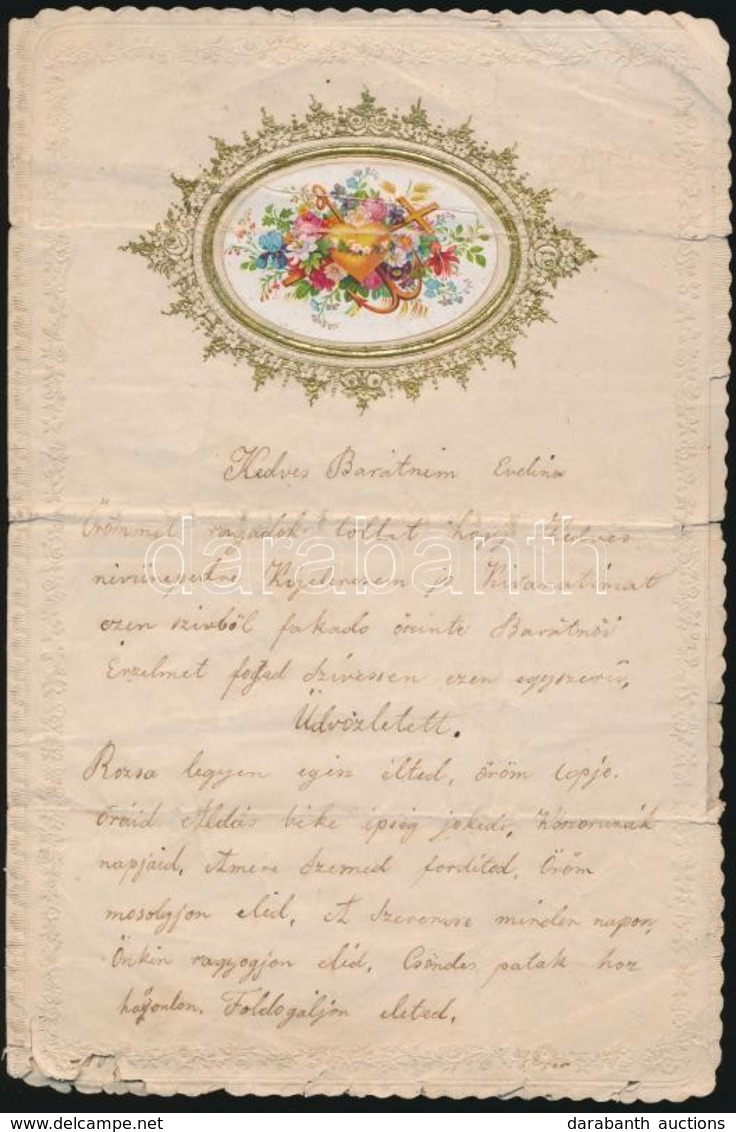 Kedves Barátném Evelina
Örömmel ragadok tollat hogy Kedves
ezen szivböl fakado öszinte Barátnöi
Érzelmet fogad szívessen ezen egyszerü,
Üdvözletett.
Rozsa legyen egész élted, öröm lapja.
óráid Áldás béke épség jokedv, Koszoruzák
napjaid, Amere szemed forditod, Öröm
mosolygjon eléd, A szerencse minden napon,
Önkin ragyogjon eléd, Csöndes patak hoz
Foldogáljon eleted,
darabanth
www.delcampe.net
darabanth auctions